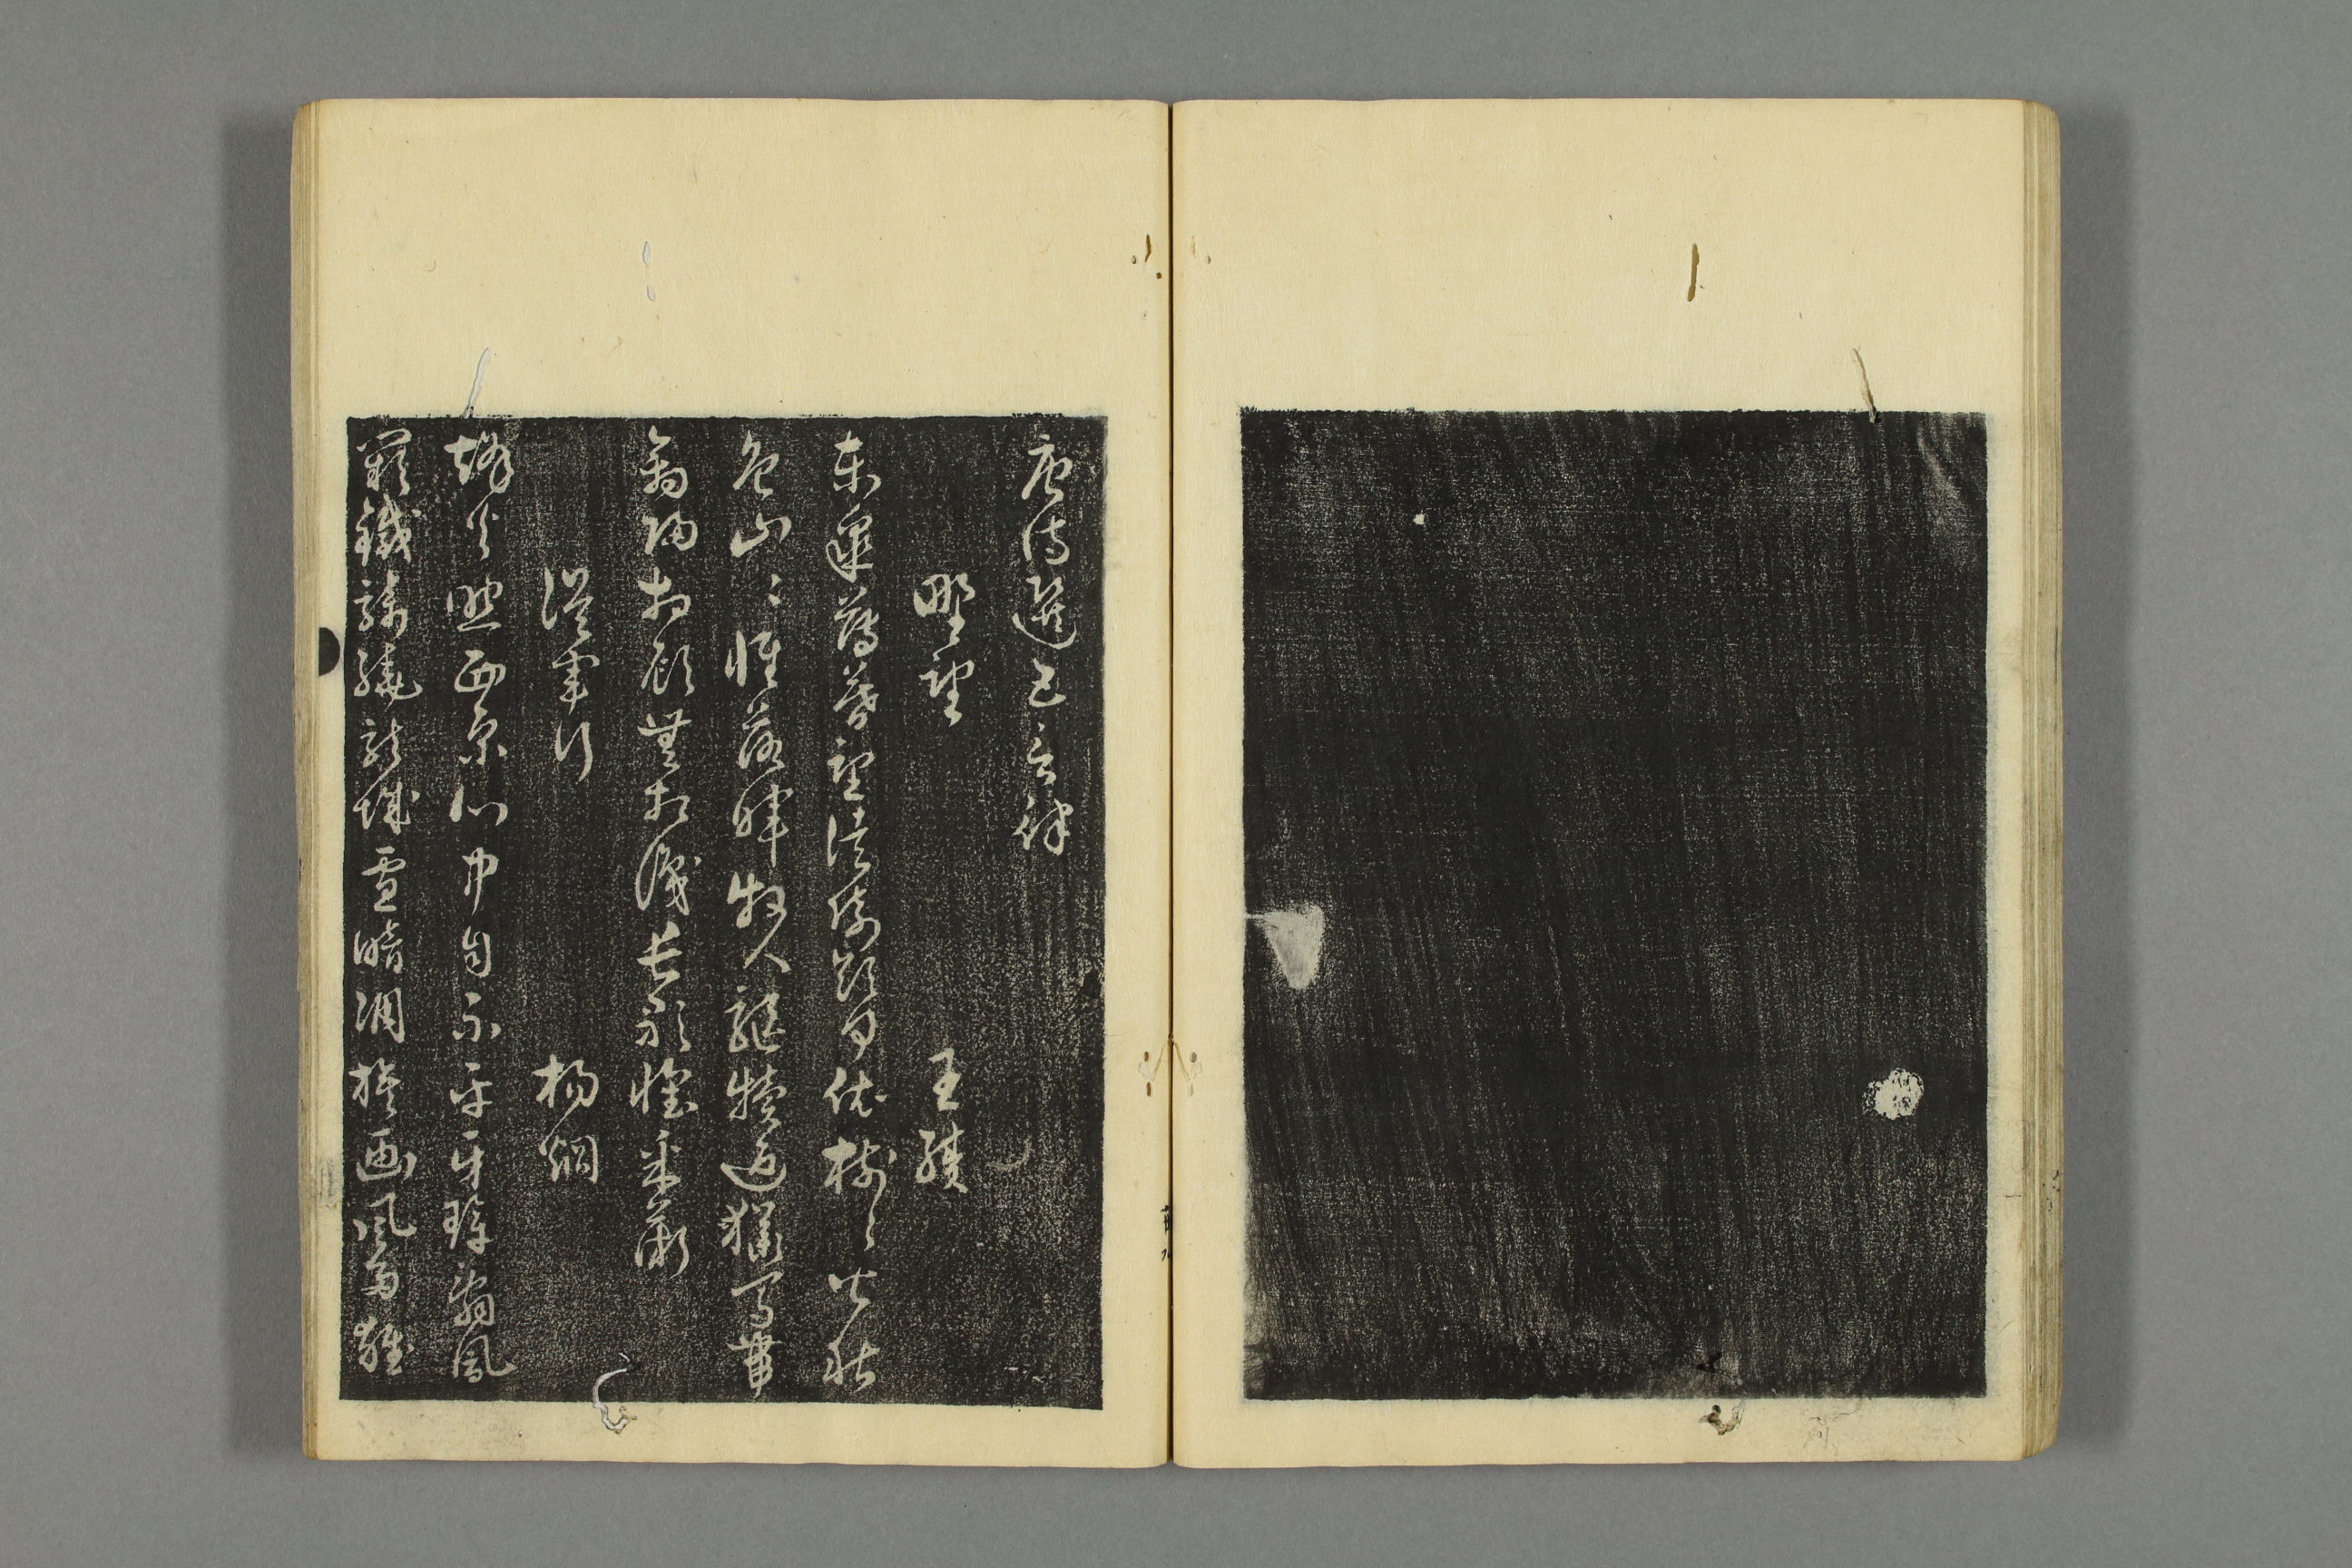 唐詩選五言律
野望 王績
東皐薄暮望徙倚欲何依樹〻皆秋
色山〻惟落暉牧人驅犢返獵馬帶
禽歸相顧無相識長歌懷采薇
從軍行 楊炯
烽火照西京心中自不平牙璋辭鳳
闕鐵騎繞龍城雪暗凋旗画風多雜